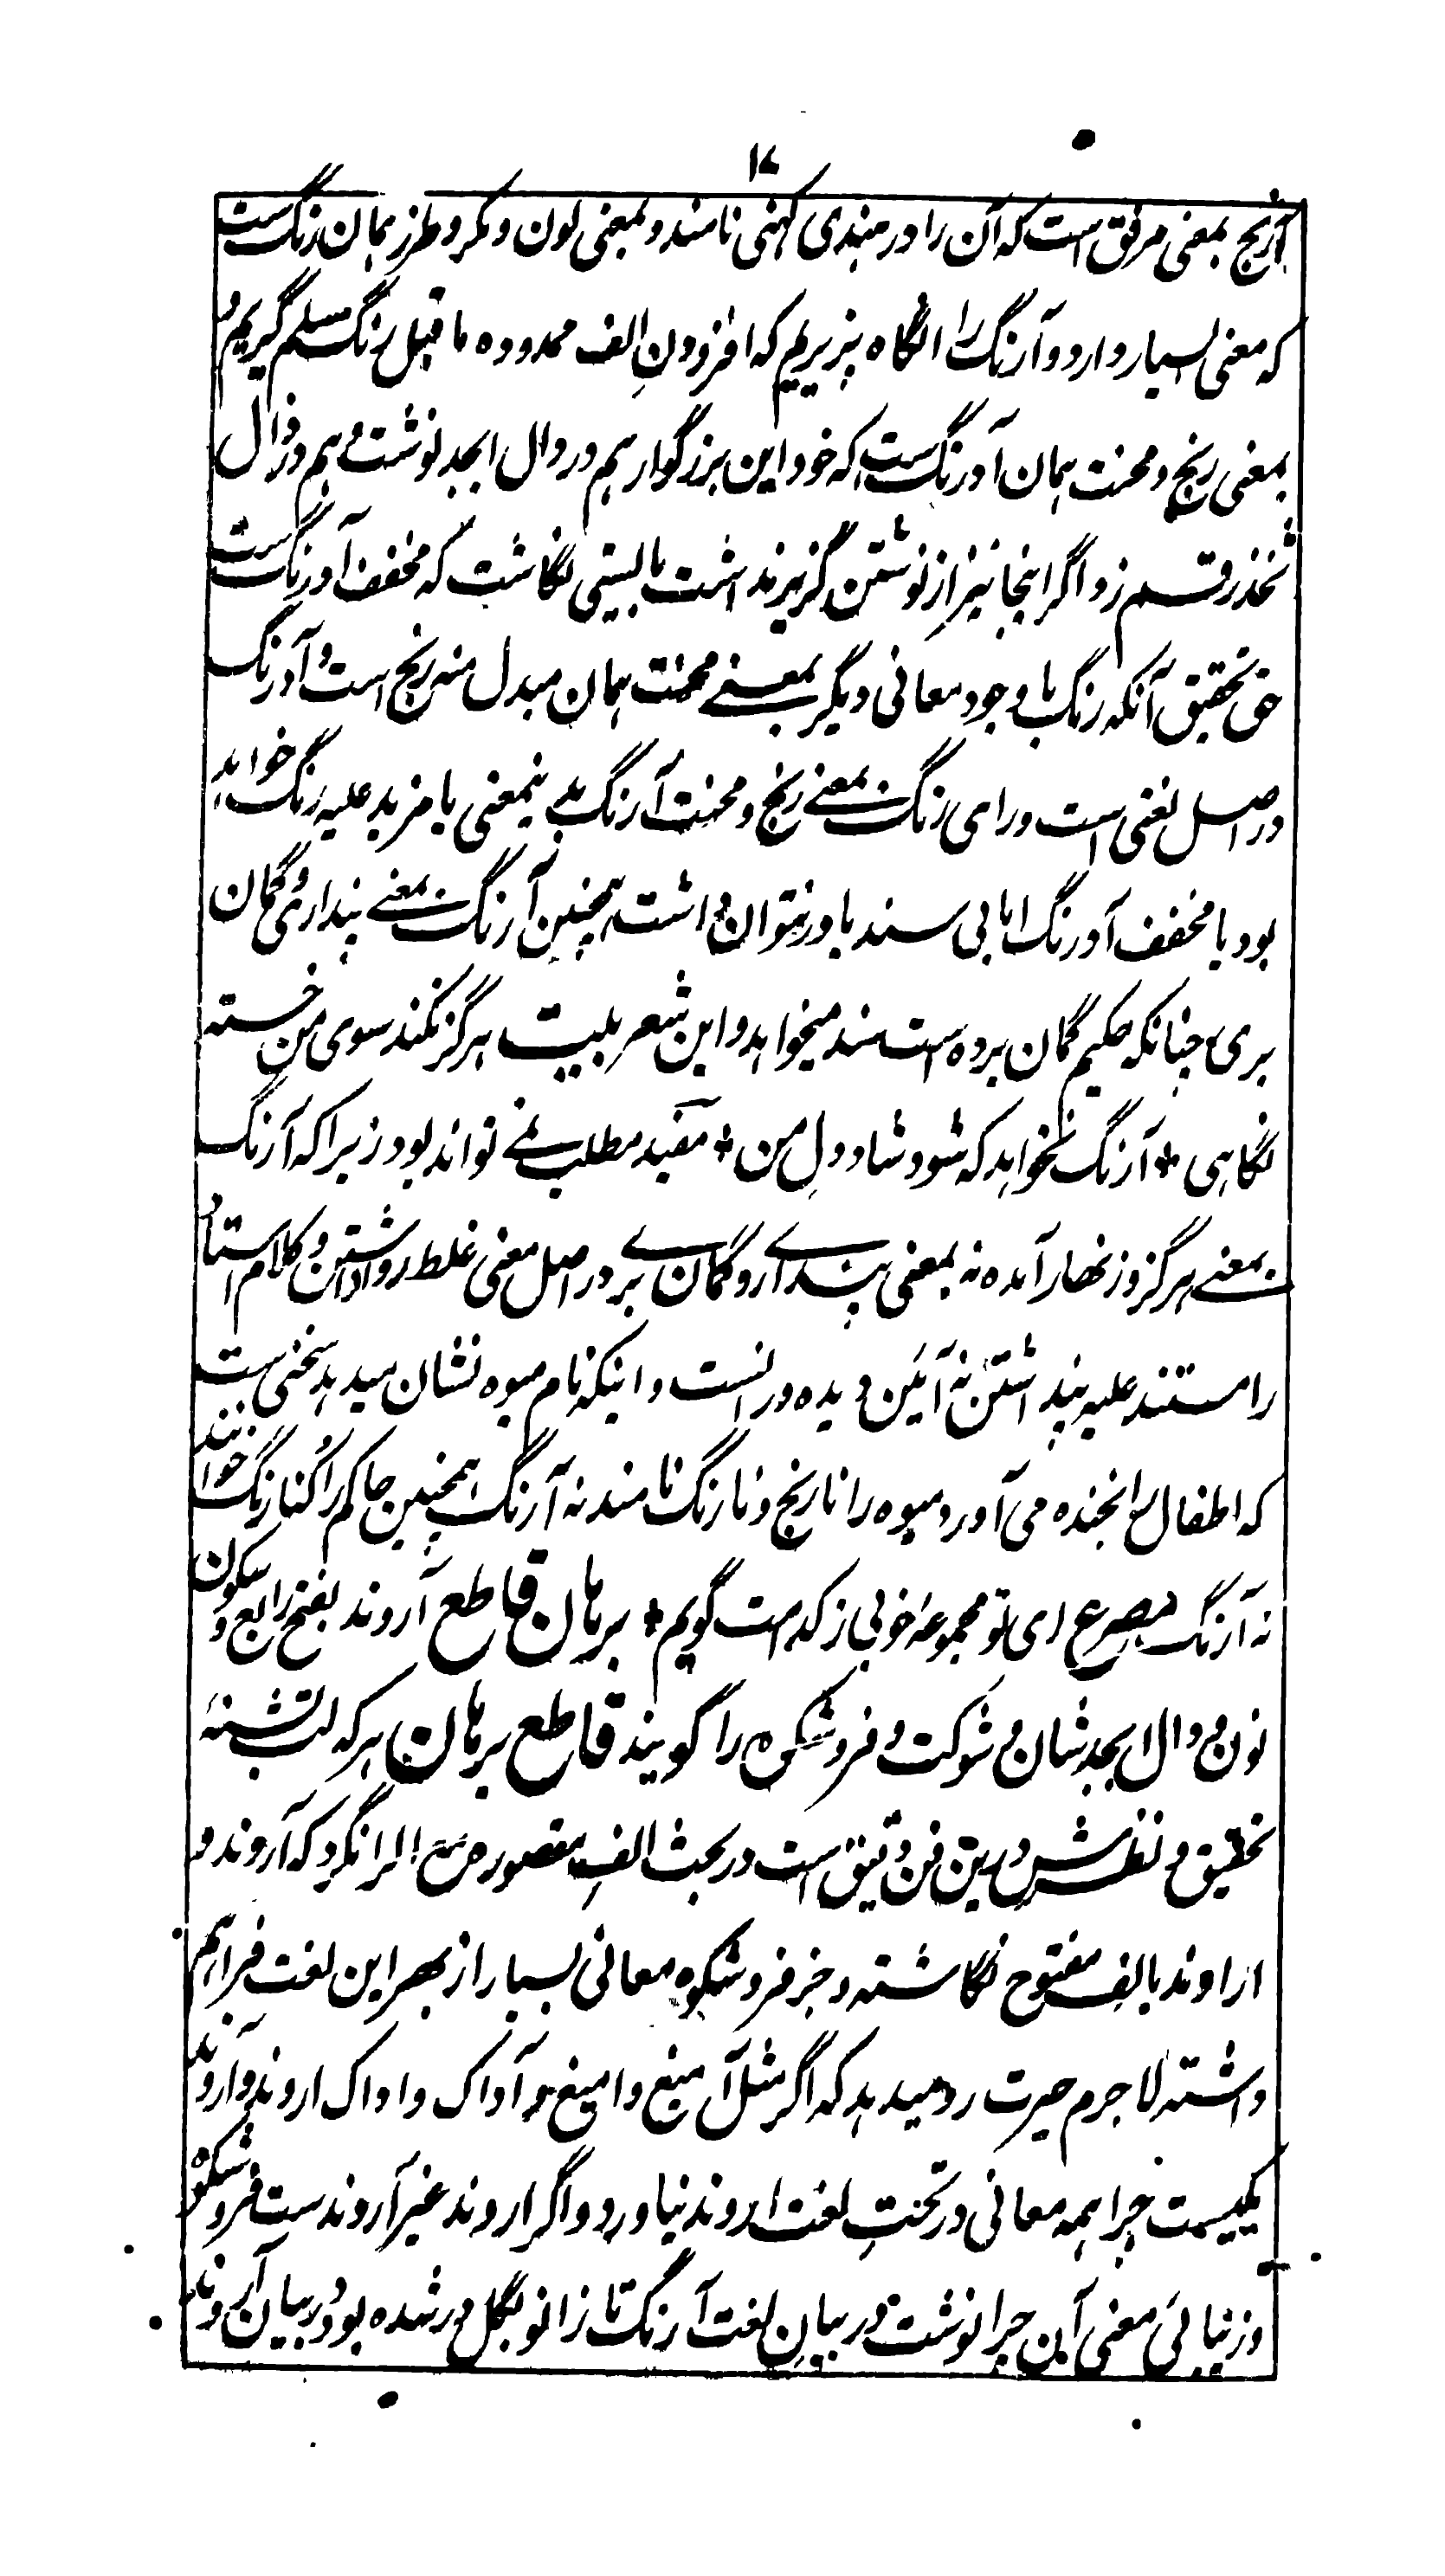 ۱۷
آرنج بمعنی مرفق است که آن را در هندی کهنی نامند و بمعنی لون و مکر و طرز همان رنگ ست
که معنی بسیار دارد و آرنگ را انگاه پذیریم که افزودنِ الف ممدوده ما قبل رنگ مسلم گریم و
بمعنی رنج و محنت همان آدرنگ ست که خود این بزرگوار هم در دال ابجد نوشت و هم در ذال
ثخذ رقم زد اگر اینجا نیز از نوشتن گزیر نداشت بایستی نگاشت که مخفف آدرنگ ست
حق تحقیق آنکه رنگ با وجود معانی دیگر بمعنے محنت همان مبدل منه رنج است و آدرنگ
در اصل لغتی است ورای رنگ بمعنے رنج و محنت آرنگ بدینمعنی یا مزید علیه رنگ خواهد
بود یا مخفف آدرنگ اما بی سند باور نتوان داشت همچنین آرنگ بمعنے پنداری و گمان
بری چنانکه حکیم گمان برده است سند میخواهد و این شعر بیت هرگز نکند سوی من خسته
نگاهی * آرنگ نخواهد که شود شاد دلِ من * مفید مطلب نمے تواند بود زیرا که آرنگ
بمعنے هرگز و زنهار آمده نه بمعنی پندارے و گمان برے در اصل معنی غلط روا داشتن و کلام استاد
را مستند علیه پنداشتن نه آئین دیده ورانست و اینکه نام میوه نشان میدهد سخنی ست
که اطفال را بخنده می آورد میوه را نارنج و نارنگ نامند نه آرنگ همچنین حاکم را کنارنگ خوانند
نه آرنگ مصرع ای تو مجموعهٔ خوبی ز کدامت گویم * برهان قاطع آروند بفتح رابع و سکون
نون و دال ابجد شان و شوکت و فر و شکوه را گویند قاطع برهان هر که لب تشنهٔ
تحقیق و نظرش درین فن دقیق است در بحث الفِ مقصوره مع الرا نگرد که آروند و
اراوند بالفِ مفتوح نگاشته و جز فر و شکوه معانی بسیار از بهر این لغت فراهم
داشته لا جرم حیرت رو میدهد که اگر مثل آمیغ و امیغ و آداک و اداک اروند و آروند
یکیست چرا همه معانی در تحتِ لغت اروند نیاورد و اگر اروند غیر آروند ست فر و شکوه
و زیبائی معنی آن چرا نوشت در بیانِ لغت آرنگ تا زانو بگل در شده بود در بیان آروند